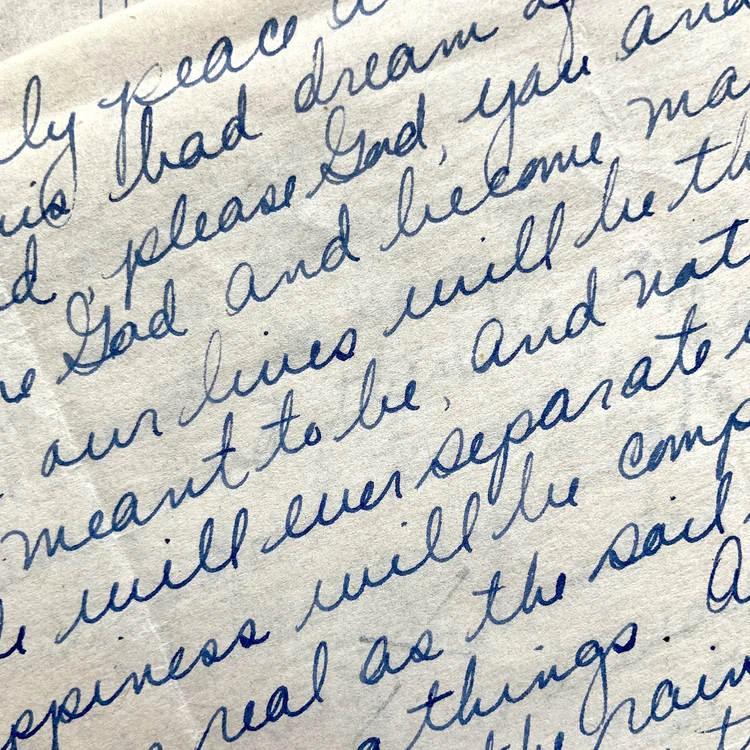 ly peace
his bad dream of
d, please God, you and
re God and become ma
our lives will be th
meant to be, and not
will ever separate
ppiness will be comp
real as the soil,
things. A
the rain